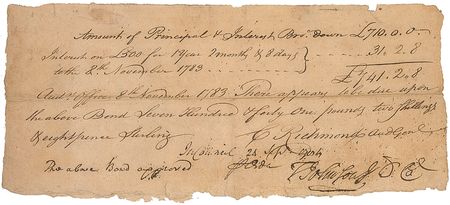 Amount of Principal & Interest Bro.t down £710.0.0
Interest on £500 for 1 Year 2 month & 8 days
31.2.8
to the 8th November 1783
£741.2.8
Aud.rs Office 8th November 1783 There appears to be due upon
the above Bond Seven Hundred & forty One pounds two Shillings
& eight pence Sterling
C Richmond Aud Gen.l
In Council 24 Sept 1784
The above Bond approved